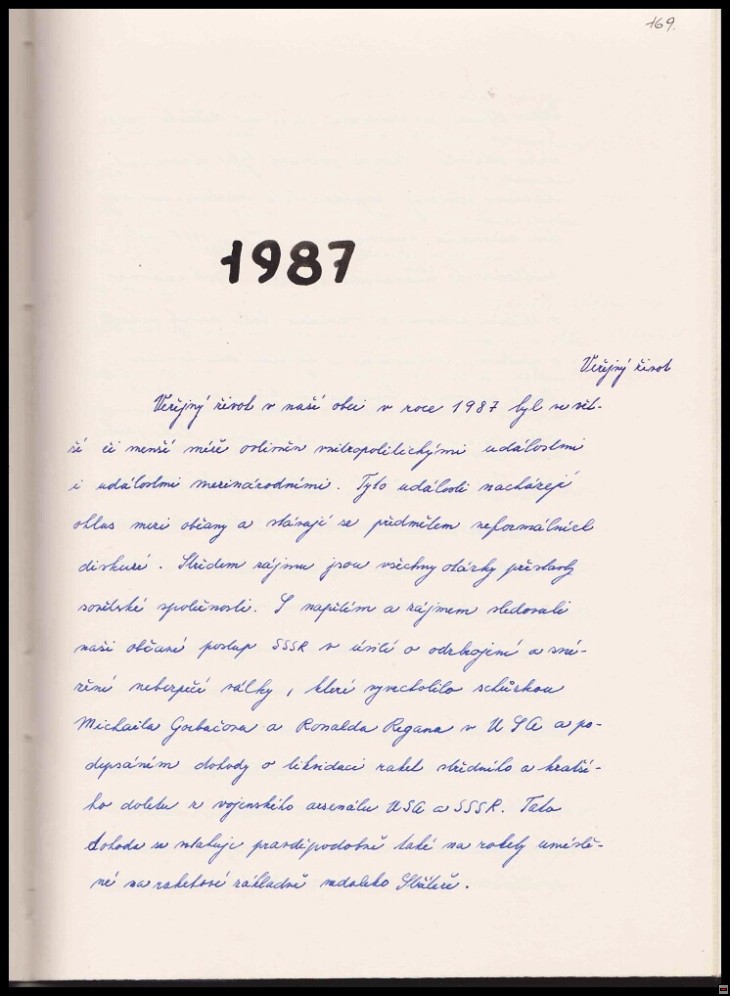 169.
1987
Veřejný život
Veřejný život v naší obci v roce 1987 byl ve vět-
ší či menší míře ovlivněn vnitropolitickými událostmi
i událostmi mezinárodními. Tyto události nacházejí
ohlas mezi občany a stávají se předmětem neformálních
diskuzí. Středem zájmu jsou všechny otázky přestavby
sovětské společnosti. S napětím a zájmem sledovali
naši občané postup SSSR v úsilí o odzbrojení a sní-
žení nebezpečí války, které vyvrcholilo schůzkou
Michaila Gorbačova a Ronalda Regana v USA a po-
depsáním dohody o likvidaci raket středního a kratší-
ho doletu z vojenského arzenálu USA a SSSR. Tato
dohoda se vztahuje pravděpodobně také na rakety umístě-
né na raketové základně nedaleko